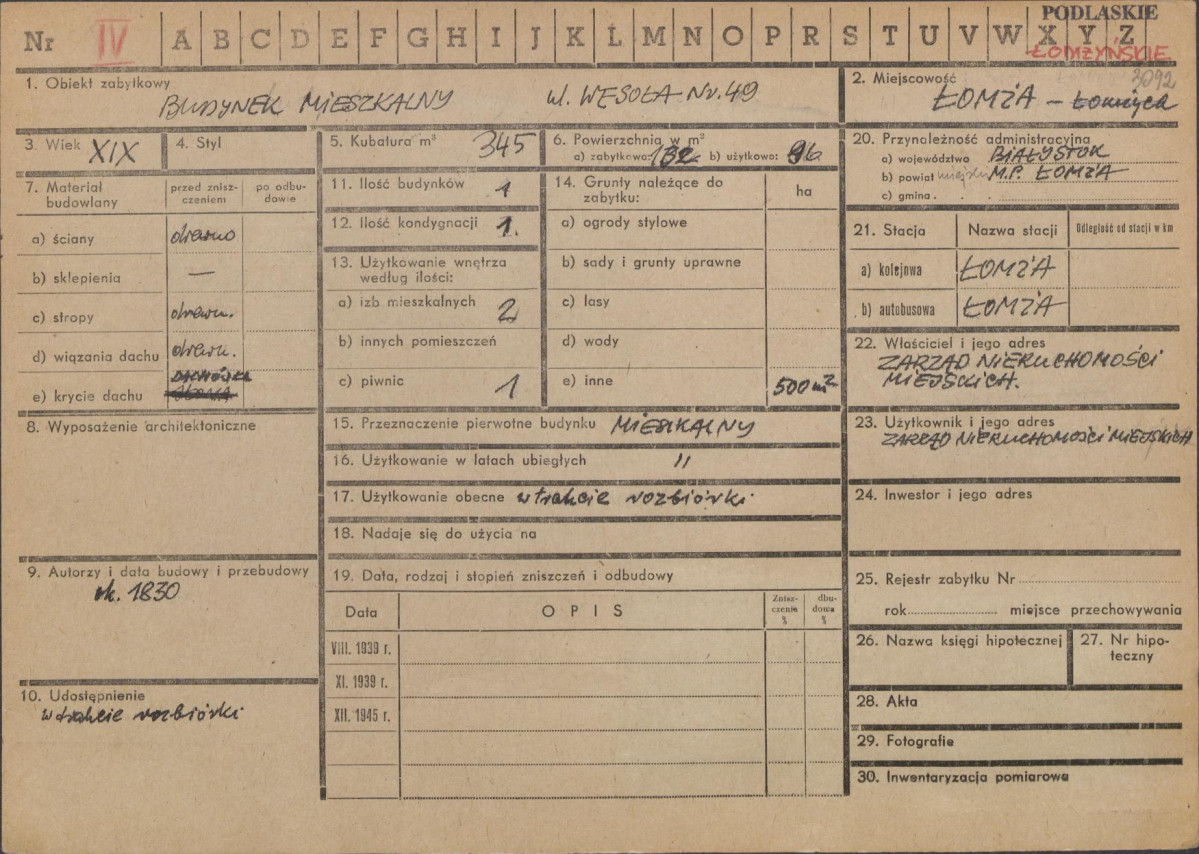 PODLASKIE
Nr IV A B C D E F G H I J K L M N O P R S T U V W X Y Z
ŁOMŻYŃSKIE
3092
1. Obiekt zabytkowy
BUDYNEK MIESZKALNY ul. WESOŁA Nr. 49
2. Miejscowość
ŁOMŻA –
3. Wiek XIX
4. Styl
5. Kubatura m³ 345
6. Powierzchnia w m²
a) zabytkowa: 132 b) użytkowa: 96
20. Przynależność administracyjna
a) województwo BIAŁYSTOK
b) powiat miejski M.P. ŁOMŻA
c) gmina
7. Materiał budowlany
przed zniszczeniem
po odbudowie
a) ściany drewno
b) sklepienia —
c) stropy drewn.
d) wiązania dachu drewn.
DACHÓWKA
e) krycie dachu
11. Ilość budynków 1
12. Ilość kondygnacji 1.
13. Użytkowanie wnętrza
według ilości:
a) izb mieszkalnych 2
b) innych pomieszczeń
c) piwnic 1
14. Grunty należące do
zabytku:
ha
a) ogrody stylowe
b) sady i grunty uprawne
c) lasy
d) wody
e) inne 500 m²
21. Stacja Nazwa stacji Odległość od stacji w km
a) kolejowa ŁOMŻA
b) autobusowa ŁOMŻA
22. Właściciel i jego adres
ZARZĄD NIERUCHOMOŚCI
MIEJSKICH.
8. Wyposażenie architektoniczne
15. Przeznaczenie pierwotne budynku MIESZKALNY
16. Użytkowanie w latach ubiegłych "
17. Użytkowanie obecne w trakcie rozbiórki
18. Nadaje się do użycia na
23. Użytkownik i jego adres
ZARZĄD NIERUCHOMOŚCI MIEJSKICH
24. Inwestor i jego adres
9. Autorzy i data budowy i przebudowy
ok. 1830
10. Udostępnienie
w trakcie rozbiórki
19. Data, rodzaj i stopień zniszczeń i odbudowy
Data OPIS
Zniszczenia %
dbudowa %
VIII. 1939 r.
XI. 1939 r.
XII. 1945 r.
25. Rejestr zabytku Nr
rok miejsce przechowywania
26. Nazwa księgi hipotecznej
27. Nr hipoteczny
28. Akta
29. Fotografie
30. Inwentaryzacja pomiarowa